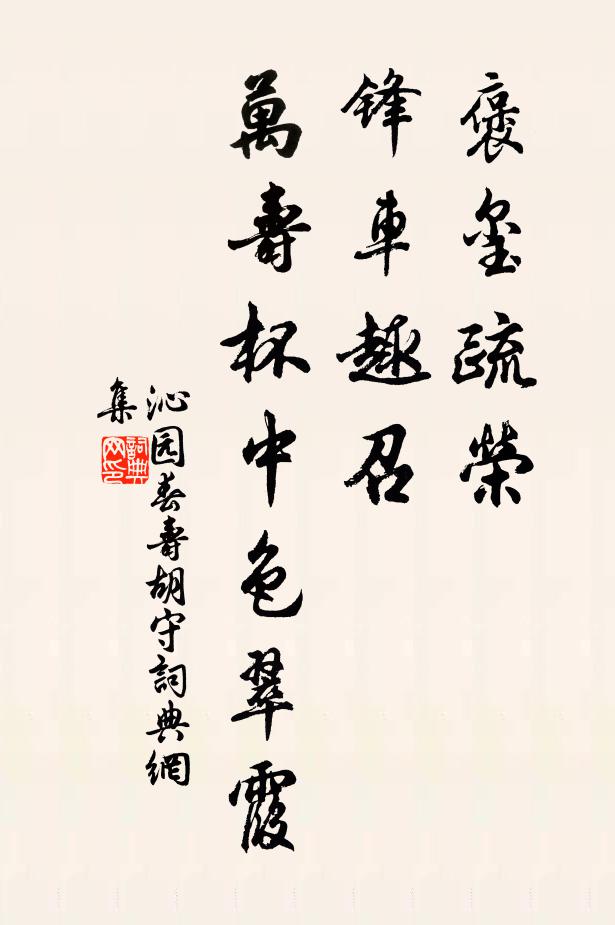 褒璽疏榮
鋒車趣召
萬壽杯中色翠霞
沁园春壽胡守詞典網
集
詞典
网印